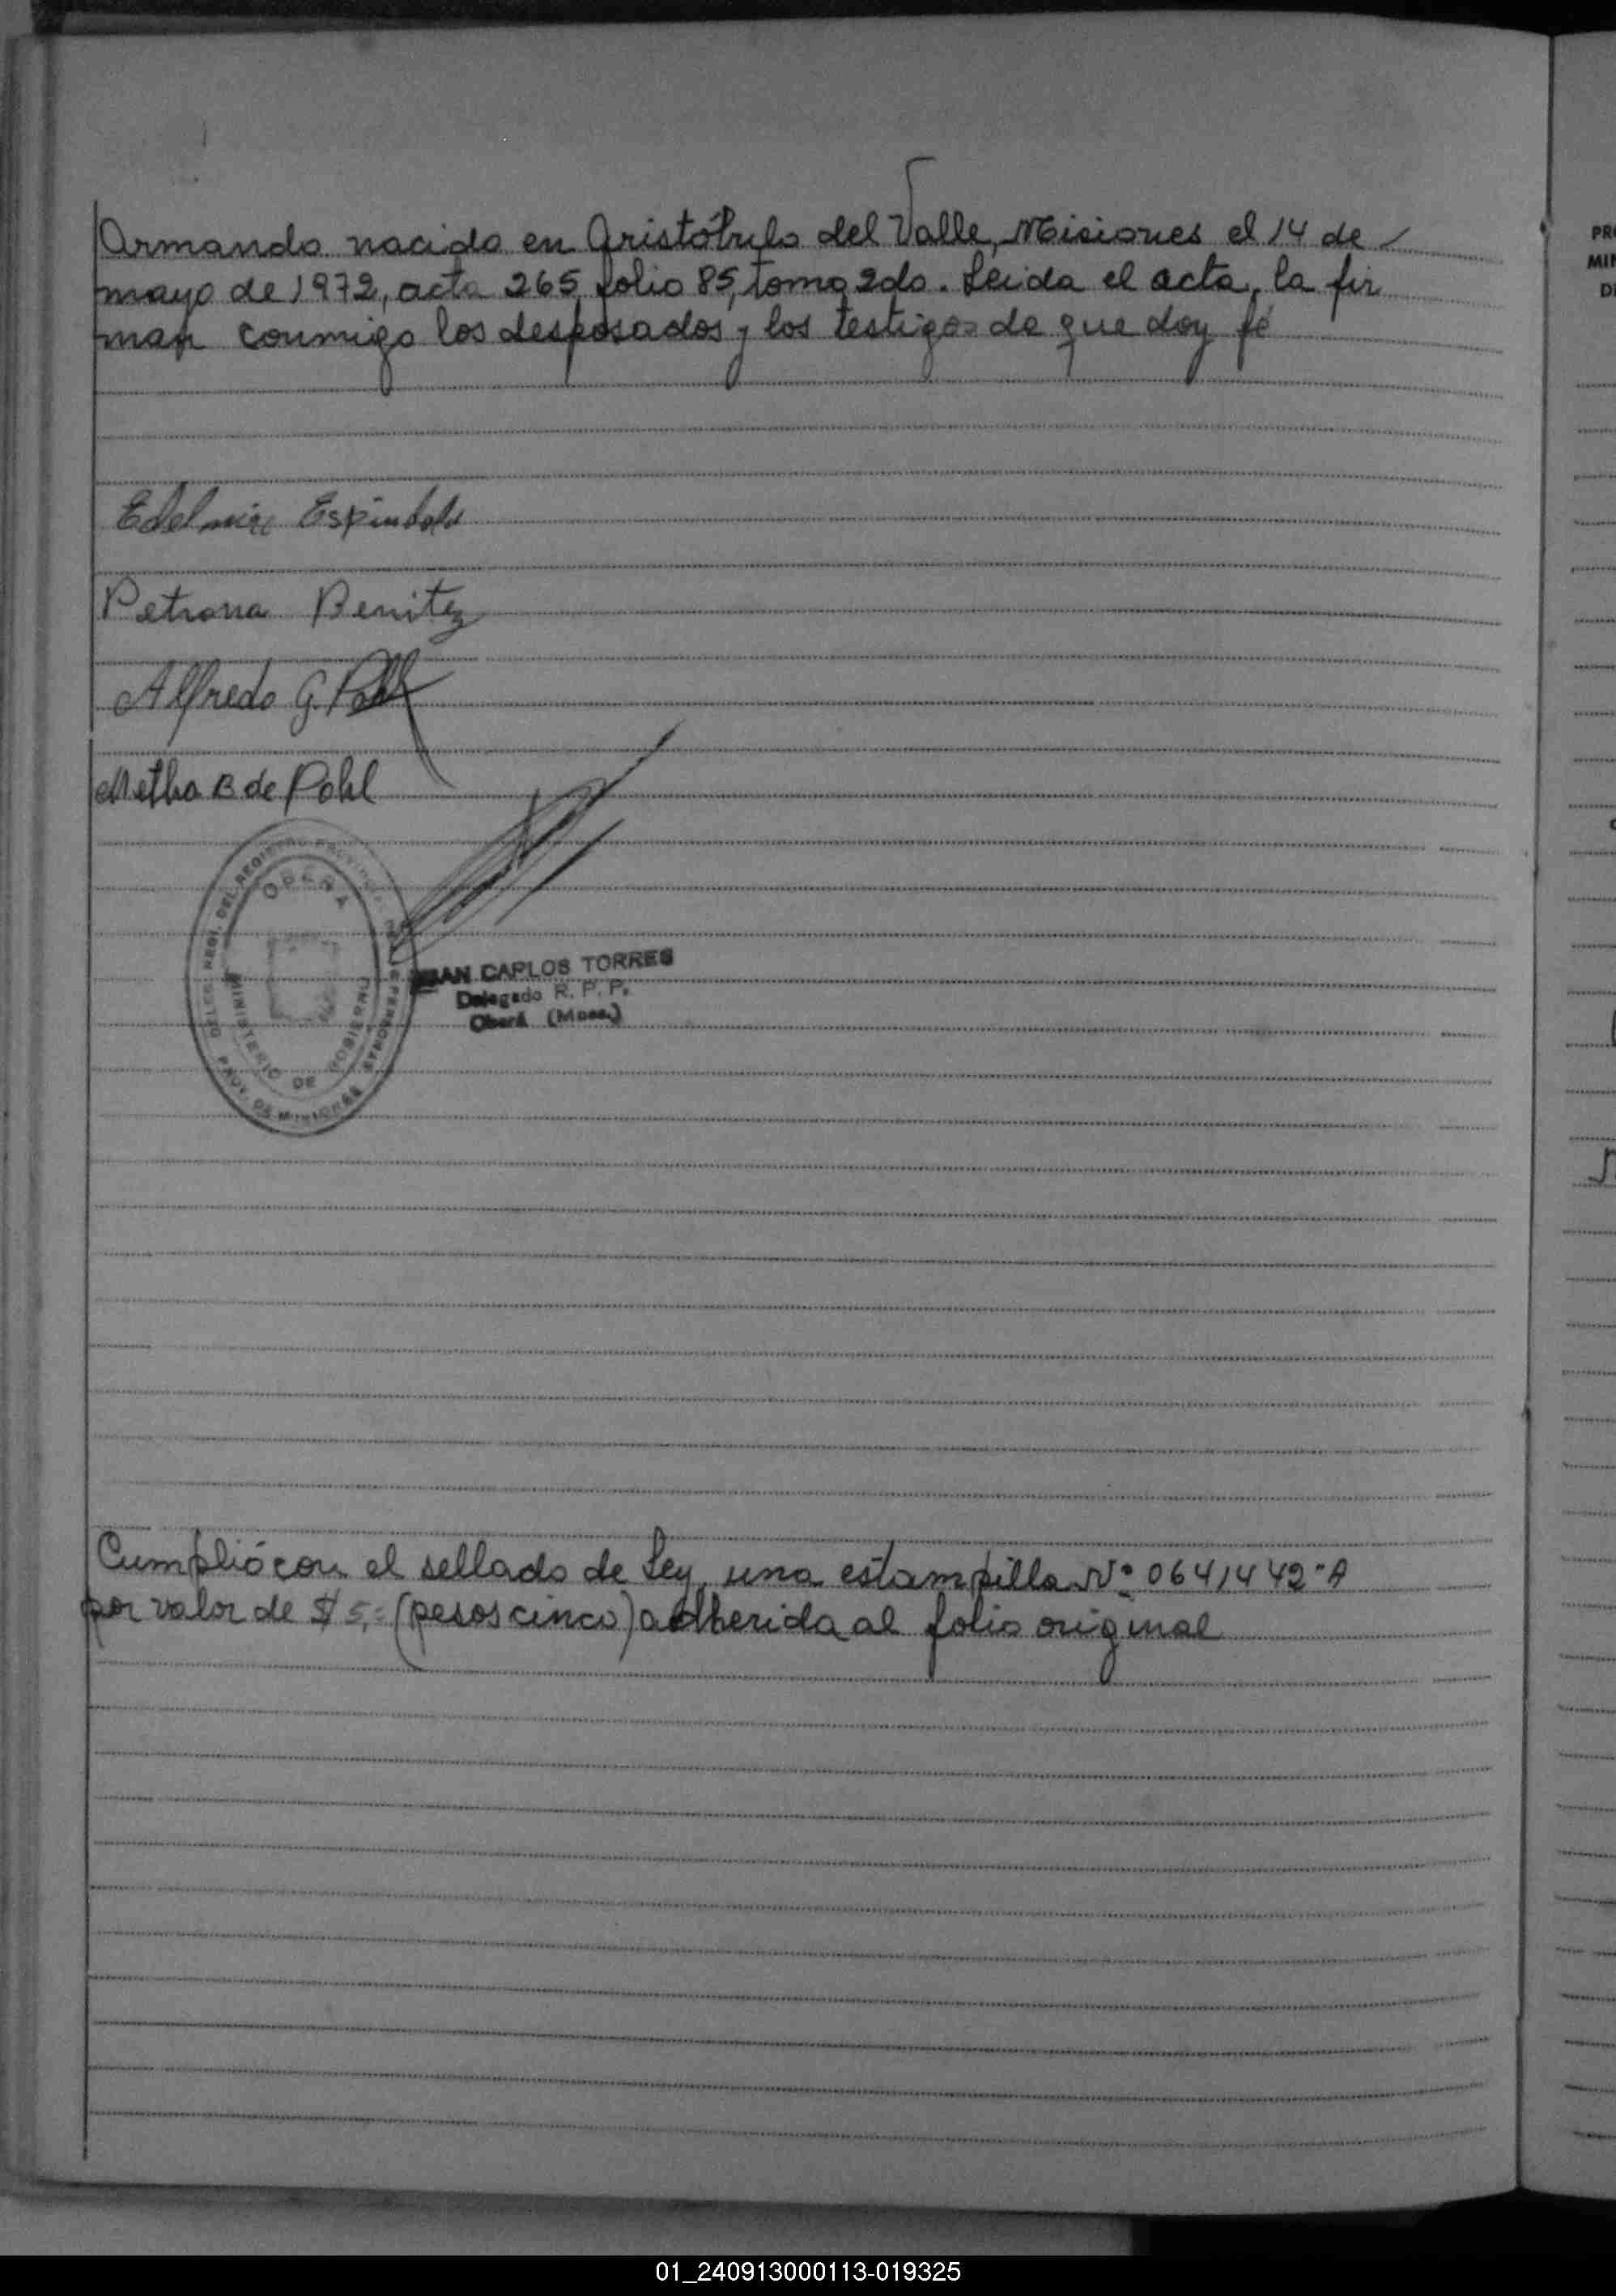 Armando nacido en Aristóbulo del Valle, Misiones el 14 de
mayo de 1972, acta 265, folio 85, tomo 2do. Leida el acta, la fir
man conmigo los desposados y los testigos de que doy fé
Edelmira Espindola
Petrona Benitez
Alfredo G. Pohl
Metha B de Pohl
OBERA
MINISTERIO DE GOBIERNO
PROV. DE MISIONES
JUAN CARLOS TORRES
Delegado R. P. P.
Oberá (Mnes.)
Cumplió con el sellado de Ley, una estampilla Nº 0641442-A
por valor de $ 5,= (pesos cinco) adherida al folio original
01_240913000113-019325